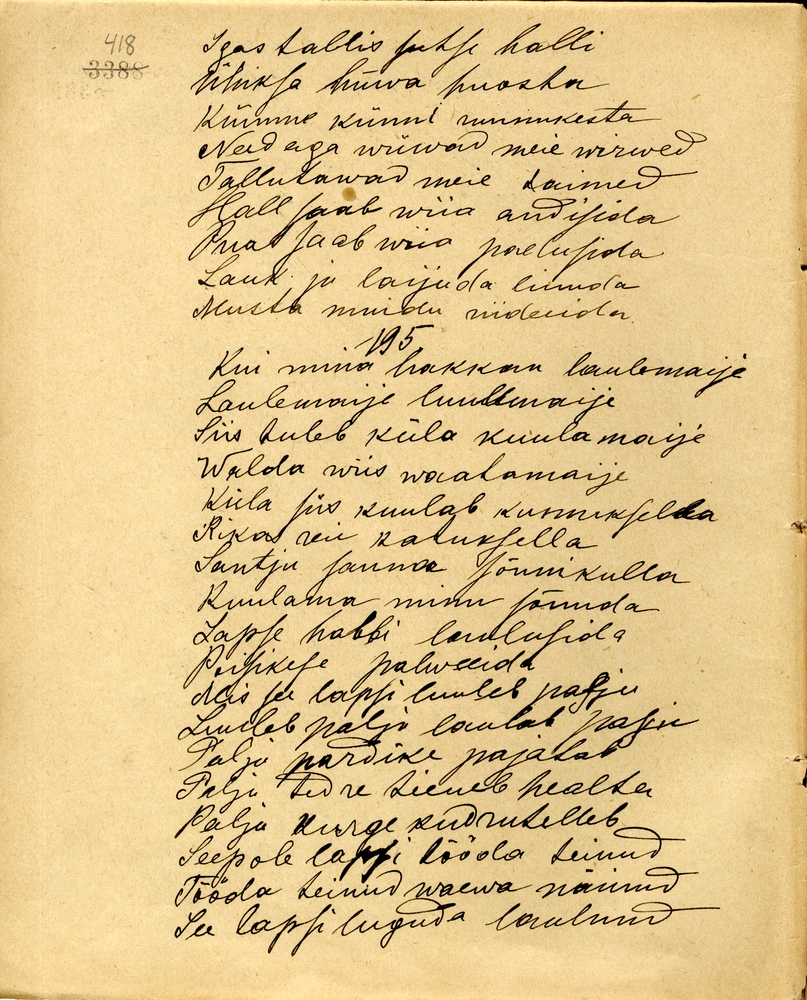 418
3388
Igas tallis sutse halli
Ühiksa hüwa huosta
Kümme künni runnukesta
Nadaga wiiwad meie wirwed
Tallutawad meie taimed
Hall saab wiia andisida
Ruat saab wiia paelusida
Lauk ja laijuda linnda
Musta muidu riideida
195
Kui mina hakkan laulemaije
Laulemaije luulemaije
Siis tuleb küla kuulamaije
Walda wiis waatamaije
Küla siis kuulab kunnuksella
Rikas reie katuksella
Santju sauna sõnnikulla
Kuulama minu sõnuda
Lapse habbi laulusida
Poisikese palweeida
Mis see lapsi luuleb palju
Luuleb palju laulab palju
Palju pardike pajatab
Palju tedre tieneb healta
Palju kurge kudrutelleb
Seepole lapsi tööda teinud
Tööda teinud waewa näinud
See lapsi luguda laulnud